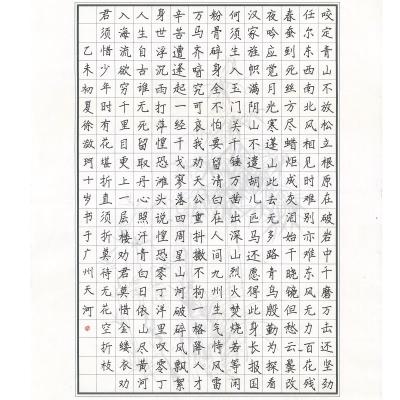 咬定青山不放松立根原在破岩中千磨万击还坚劲
任尔东西南北风相见时难别亦难东风无力百花残
春蚕到死丝方尽蜡炬成灰泪始干晓镜但愁云鬓改
夜吟应觉月光寒蓬山此去无多路青鸟殷勤为探看
汉家旌帜满阴山不遣胡儿匹马还愿得此身长报国
何须生入玉门关千锤万凿出深山烈火焚烧若等闲
粉骨碎身全不怕要留清白在人间九州生气恃风雷
万马齐喑究可哀我劝天公重抖擞不拘一格降人才
辛苦遭逢起一经干戈寥落四周星山河破碎风飘絮
身世浮沉雨打萍惶恐滩头说惶恐零丁洋里叹零丁
人生自古谁无死留取丹心照汗青白日依山尽黄河
入海流欲穷千里目更上一层楼劝君莫惜金缕衣劝
君须惜少年时有花堪折直须折莫待无花空折枝
乙未初夏徐珂十岁书于广州天河